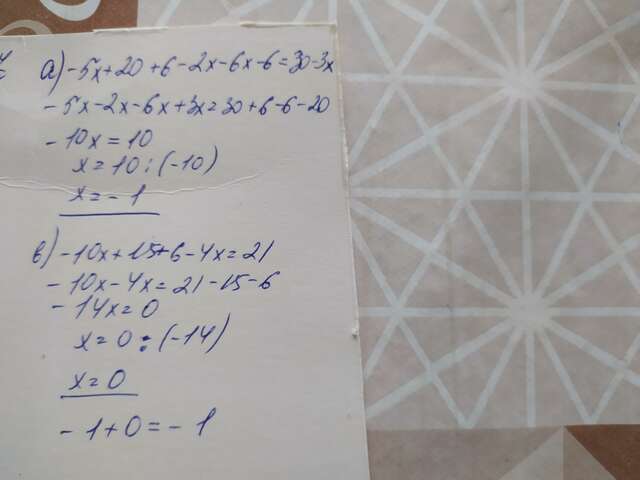 а) -5x+20+6-2x-6x-6=30-3x
-5x-2x-6x+3x=30+6-6-20
-10x=10
x=10:(-10)
x=-1
в) -10x+15+6-4x=21
-10x-4x=21-15-6
-14x=0
x=0:(-14)
x=0
-1+0=-1